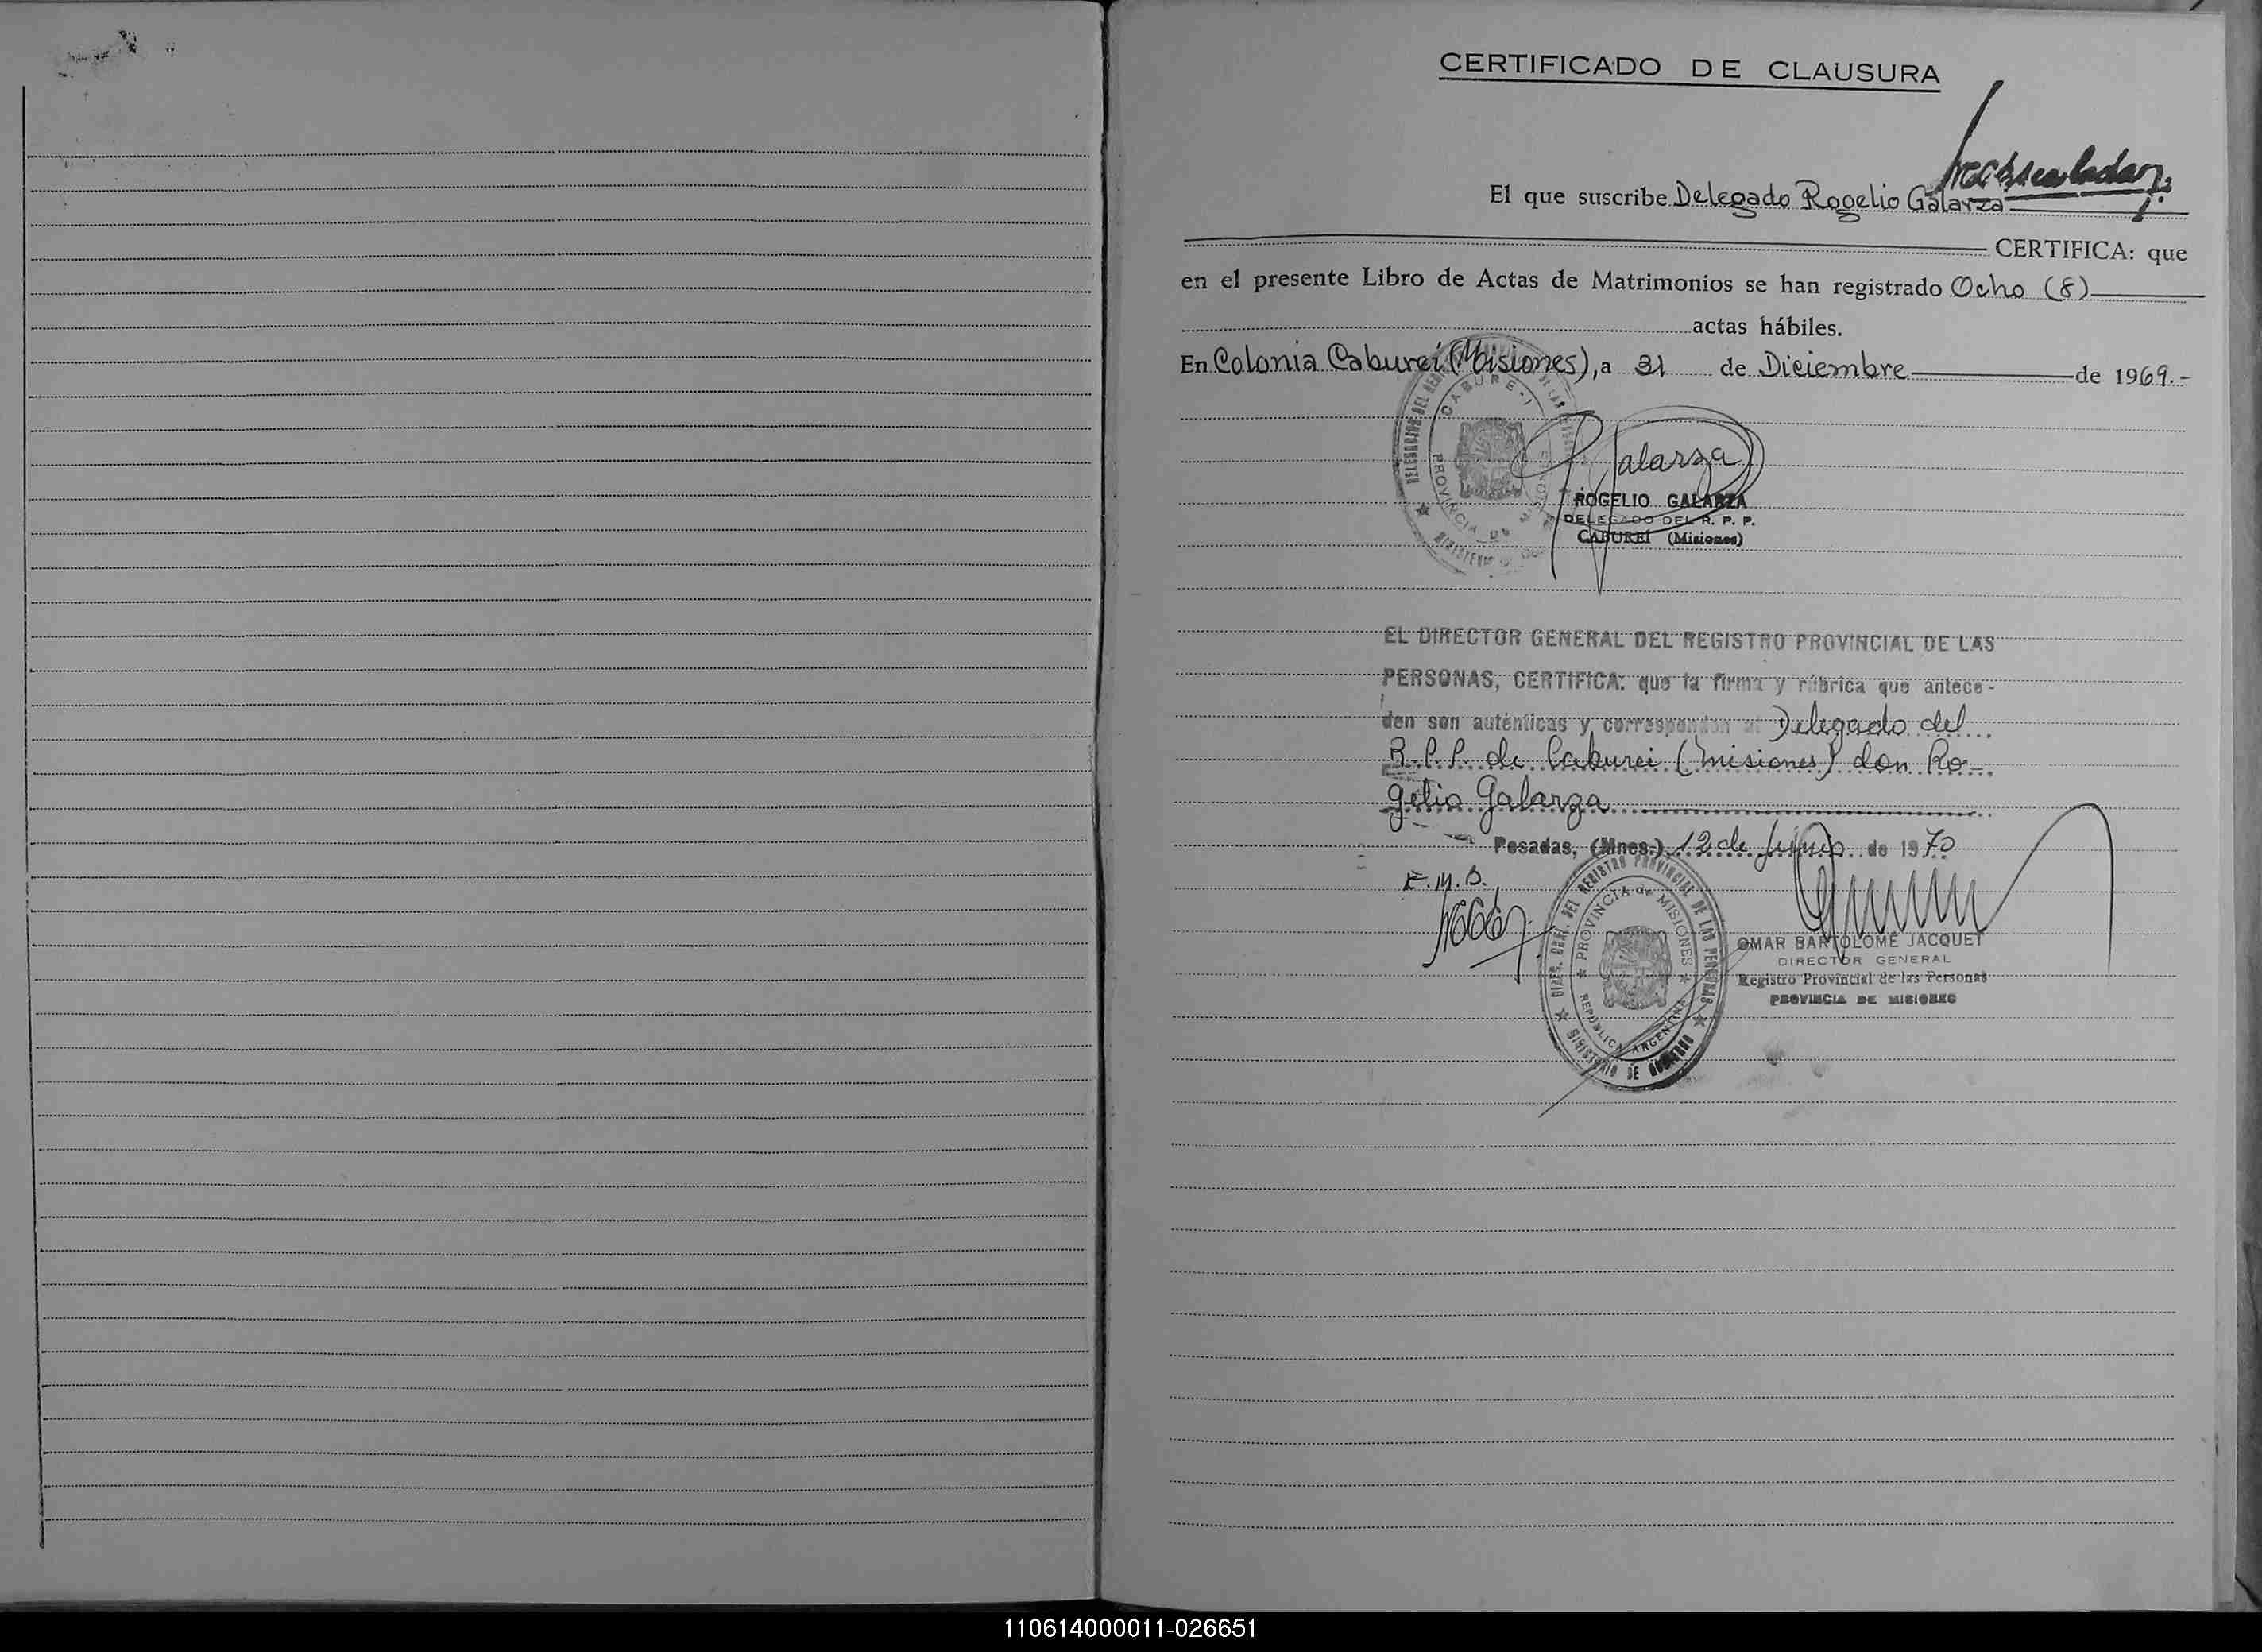 CERTIFICADO DE CLAUSURA
El que suscribe Delegado Rogelio Galarza
CERTIFICA: que
en el presente Libro de Actas de Matrimonios se han registrado Ocho (8)
actas hábiles.
En Colonia Caburei (Misiones), a 31 de Diciembre de 1969.-
CABURE-I
PROVINCIA DE MISIONES
Galarza
ROGELIO GALARZA
DELEGADO DEL R. P. P.
CABUREÍ (Misiones)
EL DIRECTOR GENERAL DEL REGISTRO PROVINCIAL DE LAS
PERSONAS, CERTIFICA: que la firma y rúbrica que antece-
den son auténticas y corresponden al Delegado del
R.P.P. de Caburei (Misiones) don Ro-
gelio Galarza
Posadas, (Mnes.) 12 de Junio de 1970
E.M.B.
DIREC. GRAL. DEL REGISTRO PROVINCIAL DE LAS PERSONAS
PROVINCIA de MISIONES
REPUBLICA ARGENTINA
MINISTERIO DE GOBIERNO
OMAR BARTOLOMÉ JACQUET
DIRECTOR GENERAL
Registro Provincial de las Personas
PROVINCIA DE MISIONES
110614000011-026651